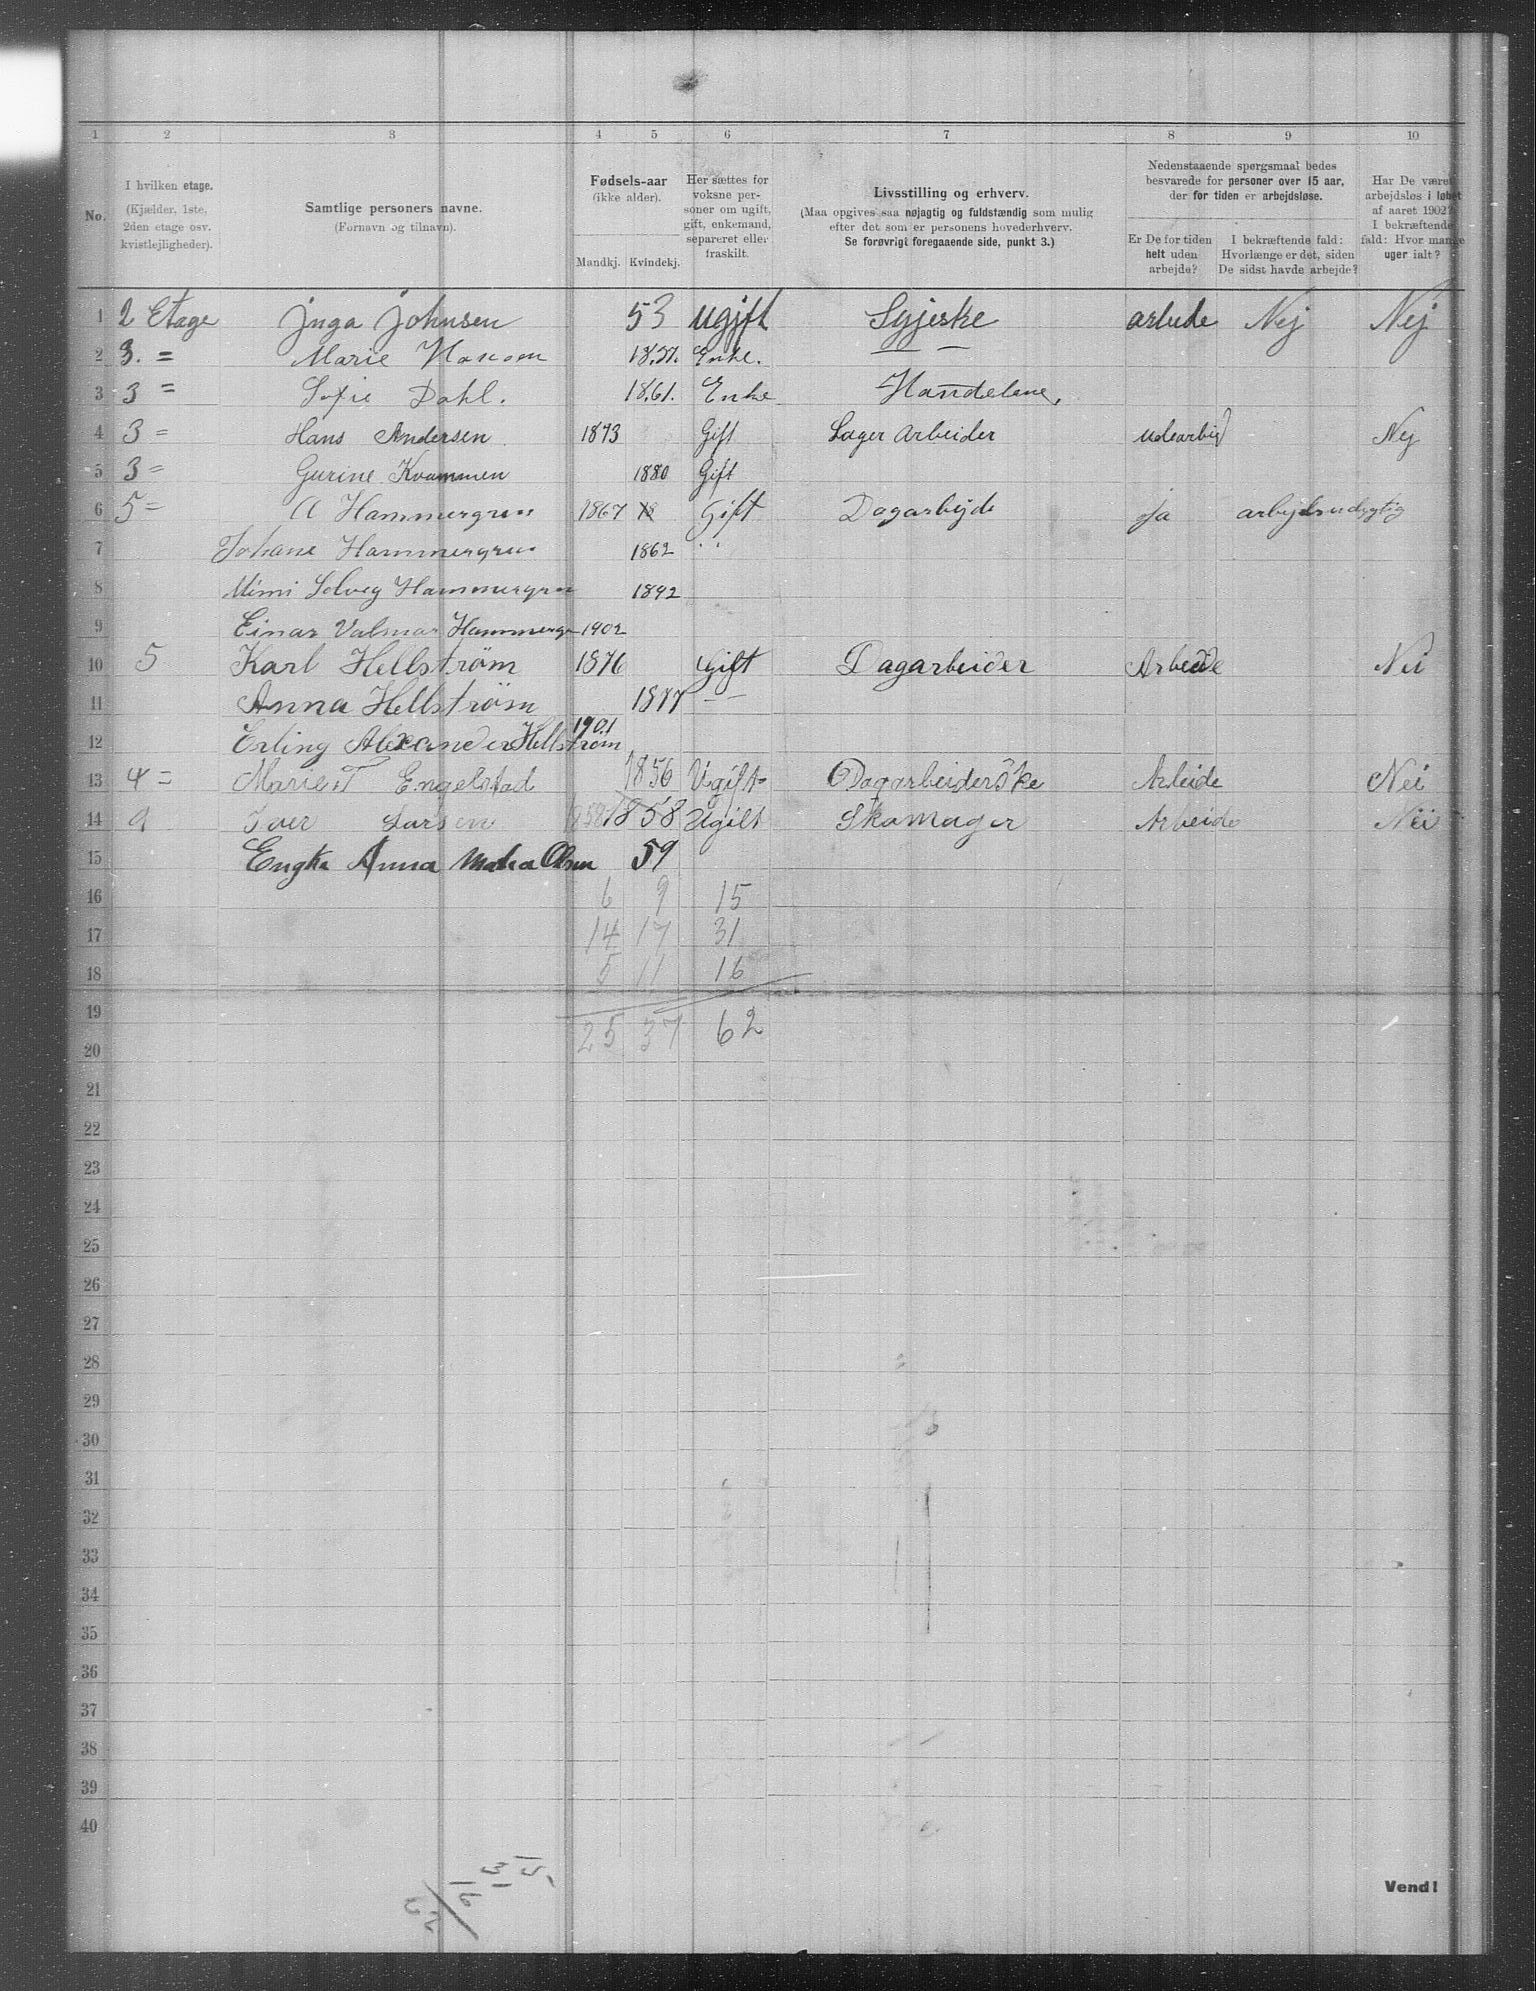 1 2 3 4 5 6 7 8 9 10
No.
I hvilken etage.
(Kjælder, 1ste,
2den etage osv.
kvistlejligheder).
Samtlige personers navne.
(Fornavn og tilnavn).
Fødsels-aar
(ikke alder).
Mandkj. Kvindekj.
Her sættes for
voksne per-
soner om ugift,
gift, enkemand,
separeret eller
fraskilt.
Livsstilling og erhverv.
(Maa opgives saa nøjagtig og fuldstændig som mulig
efter det som er personens hovederhverv.
Se forøvrigt foregaaende side, punkt 3.)
Nedenstaaende spørgsmaal bedes
besvarede for personer over 15 aar,
der for tiden er arbejdsløse.
Er De for tiden
helt uden
arbejde?
I bekræftende fald:
Hvorlænge er det, siden
De sidst havde arbejde?
Har De været
arbejdsløs i løbet
af aaret 1902?
I bekræftende
fald: Hvor mange
uger ialt?
1 2 Etage Inga Johnsen 53 ugift Syjeske arbeide Nej Nej
2 3. = Marie 18.37. Enke. — —
3 3 = Sofie Dahl. 18.61. Enke Handelene,
4 3 = Hans Andersen 1873 Gift Lager Arbeider udearbej Nej
5 3 = Gurine Kvammen 1880 Gift
6 5 = A Hammergren 1867 18 Gift Dagarbejde Ja arbejdsudygtig
7 Johane Hammergren 1862 " "
8 Mimi Solveg Hammergren 1892
9 Einar Valmar Hammergr 1902
10 5 Karl Hellstrøm 1876 Gift Dagarbeider Arbeide Nei
11 Anna Hellstrøm 1877 —
12 Erling Alexander Hellstrøm 1901
13 4 = Marie T Engelstad 1856 Ugift Dagarbeiderske Arbeide Nei
14 Iver Larsen 1858 Ugift Skomager Arbeide Nei
15 Engke Anna Olsen 59
16 6 9 15
17 14 17 31
18 5 11 16
19 25 37 62
20
21
22
23
24
25
26
27
28
29
30
31
32
33
34
35
36
37
38
39
40
15
31
16
62
Vend!